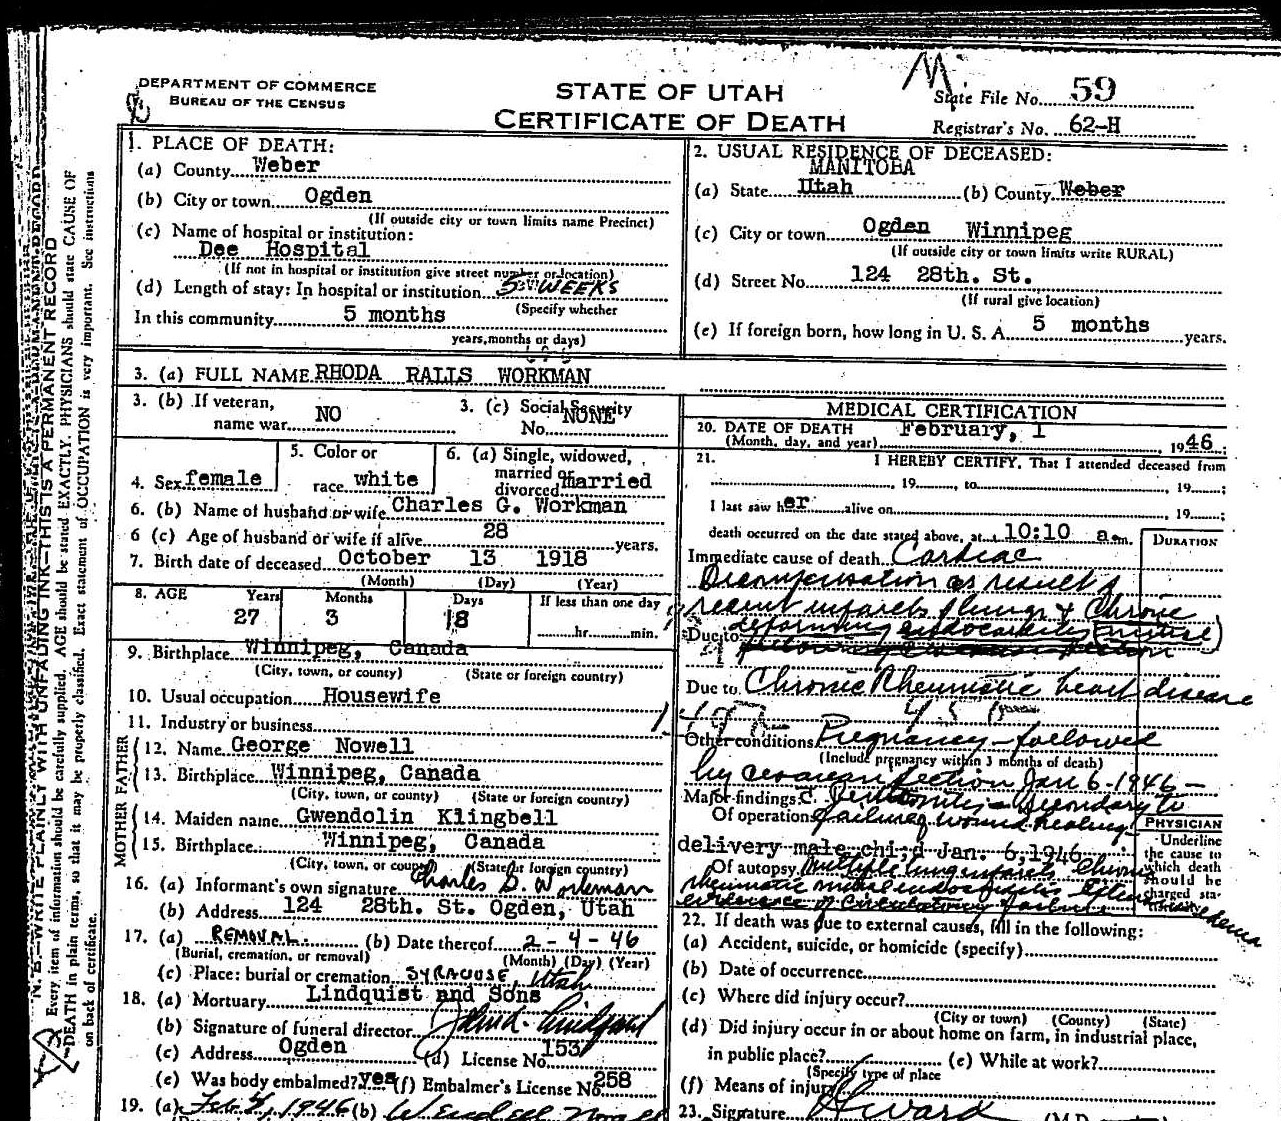 DEPARTMENT OF COMMERCE
BUREAU OF THE CENSUS
STATE OF UTAH
CERTIFICATE OF DEATH
State File No. 59
Registrar's No. 62-H
N. B.—WRITE PLAINLY WITH UNFADING INK—THIS IS A PERMANENT RECORD
Every item of information should be carefully supplied. AGE should be stated EXACTLY. PHYSICIANS should state CAUSE OF
DEATH in plain terms, so that it may be properly classified. Exact statement of OCCUPATION is very important. See instructions
on back of certificate.
1. PLACE OF DEATH:
(a) County Weber
(b) City or town Ogden
(If outside city or town limits name Precinct)
(c) Name of hospital or institution:
Dee Hospital
(If not in hospital or institution give street number or location)
(d) Length of stay: In hospital or institution 5 WEEKS
(Specify whether
In this community 5 months
years, months or days)
2. USUAL RESIDENCE OF DECEASED:
MANITOBA
(a) State Utah (b) County Weber
(c) City or town Ogden Winnipeg
(If outside city or town limits write RURAL)
(d) Street No. 124 28th. St.
(If rural give location)
(e) If foreign born, how long in U. S. A. 5 months years.
3. (a) FULL NAME RHODA RALLS WORKMAN
3. (b) If veteran, name war NO
3. (c) Social Security No. NONE
4. Sex female
5. Color or race white
6. (a) Single, widowed, married or divorced married
6. (b) Name of husband or wife Charles G. Workman
6 (c) Age of husband or wife if alive 28 years.
7. Birth date of deceased October 13 1918
(Month) (Day) (Year)
8. AGE Years Months Days If less than one day
27 3 18 hr. min.
9. Birthplace Winnipeg, Canada
(City, town, or county) (State or foreign country)
10. Usual occupation Housewife
11. Industry or business
FATHER
12. Name George Nowell
13. Birthplace Winnipeg, Canada
(City, town, or county) (State or foreign country)
MOTHER
14. Maiden name Gwendolin Klingbell
15. Birthplace Winnipeg, Canada
(City, town, or county) (State or foreign country)
16. (a) Informant's own signature Charles G. Workman
(b) Address 124 28th. St. Ogden, Utah
17. (a) REMOVAL (b) Date thereof 2-4-46
(Burial, cremation, or removal) (Month) (Day) (Year)
(c) Place: burial or cremation SYRACUSE, Utah
18. (a) Mortuary Lindquist and Sons
(b) Signature of funeral director
(c) Address Ogden (d) License No. 153
(e) Was body embalmed? yes (f) Embalmer's License No. 258
19. (a) Feb 1946 (b)
MEDICAL CERTIFICATION
20. DATE OF DEATH February, 1
(Month, day, and year) 1946;
21. I HEREBY CERTIFY, That I attended deceased from
, 19 , to , 19 ;
I last saw her alive on , 19 ;
death occurred on the date stated above, at 10:10 a m.
DURATION
Immediate cause of death Cardiac
Decompensation as result of
recent infarcts of lungs & Chronic
Due to deforming endocarditis (mitral)
Due to Chronic Rheumatic heart disease
Other conditions Pregnancy - followed
(Include pregnancy within 3 months of death)
by cesarean section Jan 6-1946 -
Major findings:
Of operations Peritonitis secondary to
failure of wound healing
delivery male chi;d Jan. 6,1946
Of autopsy Multiple lung infarcts Chronic
rheumatic mitral endocarditis edema
evidence of Circulatory failure
PHYSICIAN
Underline
the cause to
which death
should be
charged sta-
tistically.
22. If death was due to external causes, fill in the following:
(a) Accident, suicide, or homicide (specify)
(b) Date of occurrence
(c) Where did injury occur?
(City or town) (County) (State)
(d) Did injury occur in or about home on farm, in industrial place,
in public place? (e) While at work?
(Specify type of place
(f) Means of injury
23. Signature